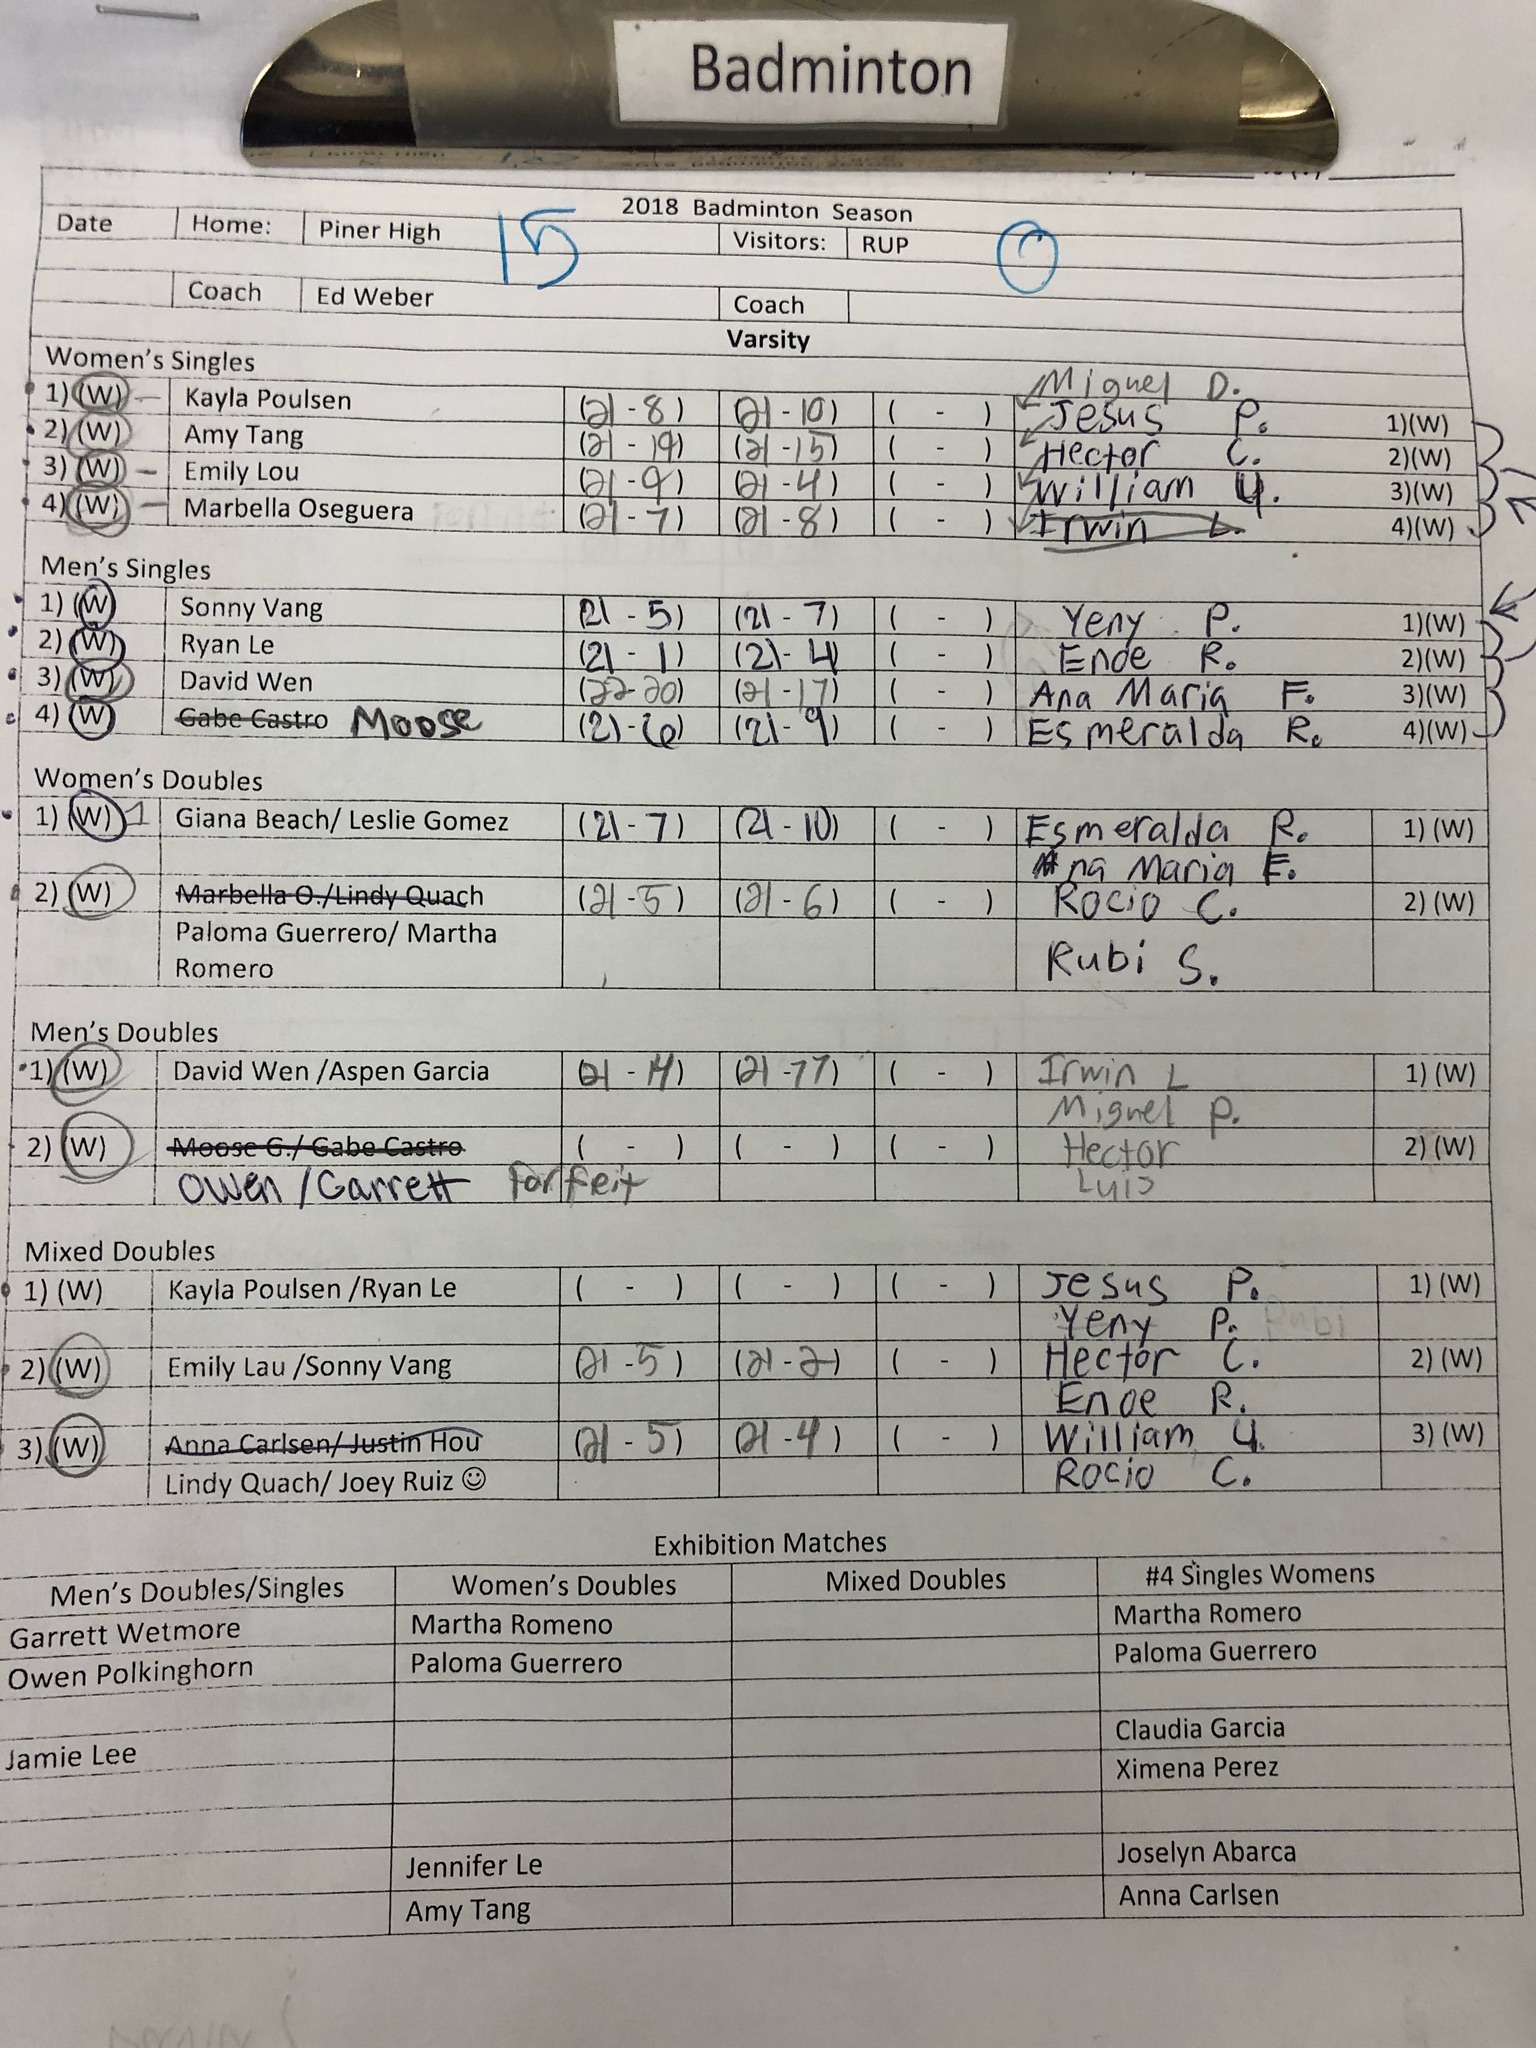 Badminton
2018 Badminton Season
Date Home: Piner High 15 Visitors: RUP 0
Coach Ed Weber Coach
Varsity
Women's Singles
Miguel D.
1) (W) Kayla Poulsen (21 - 8) (21 - 10) ( - ) Jesus P. 1)(W)
2) (W) Amy Tang (21 - 19) (21 - 15) ( - ) Hector C. 2)(W)
3) (W) Emily Lou (21 - 9) (21 - 4) ( - ) William U. 3)(W)
4) (W) Marbella Oseguera (21 - 7) (21 - 8) ( - ) Irwin L. 4)(W)
Men's Singles
1) (W) Sonny Vang (21 - 5) (21 - 7) ( - ) Yeny P. 1)(W)
2) (W) Ryan Le (21 - 1) (21 - 4) ( - ) Enoe R. 2)(W)
3) (W) David Wen (22-20) (21 - 17) ( - ) Ana Maria F. 3)(W)
4) (W) Gabe Castro Moose (21 - 6) (21 - 9) ( - ) Esmeralda R. 4)(W)
Women's Doubles
1) (W) 1 Giana Beach/ Leslie Gomez (21 - 7) (21 - 10) ( - ) Esmeralda R. 1) (W)
Ana Maria F.
2) (W) Marbella O./Lindy Quach (21 - 5) (21 - 6) ( - ) Rocio C. 2) (W)
Paloma Guerrero/ Martha
Romero Rubi S.
Men's Doubles
1) (W) David Wen /Aspen Garcia (21 - 14) (21 - 17) ( - ) Irwin L 1) (W)
Miguel P.
2) (W) Moose G./ Gabe Castro ( - ) ( - ) ( - ) Hector 2) (W)
Owen /Garrett Forfeit Luis
Mixed Doubles
1) (W) Kayla Poulsen /Ryan Le ( - ) ( - ) ( - ) Jesus P. 1) (W)
Yeny P. Rubi
2) (W) Emily Lau /Sonny Vang (21 - 5) (21 - 2) ( - ) Hector C. 2) (W)
Enoe R.
3) (W) Anna Carlsen/ Justin Hou (21 - 5) (21 - 4) ( - ) William U. 3) (W)
Lindy Quach/ Joey Ruiz ☺ Rocio C.
Exhibition Matches
Men's Doubles/Singles Women's Doubles Mixed Doubles #4 Singles Womens
Garrett Wetmore Martha Romeno Martha Romero
Owen Polkinghorn Paloma Guerrero Paloma Guerrero
Jamie Lee Claudia Garcia
Ximena Perez
Jennifer Le Joselyn Abarca
Amy Tang Anna Carlsen